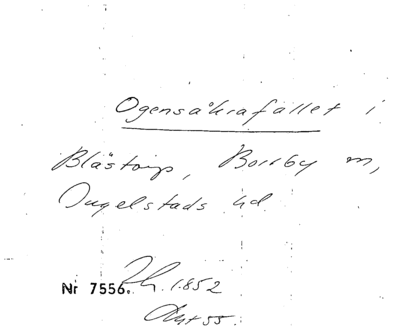 Ogensåkrafallet i
Blästorp, Borrby m,
Ingelstads hd.
Nr 7556. Lh. 1852
Akt 55.